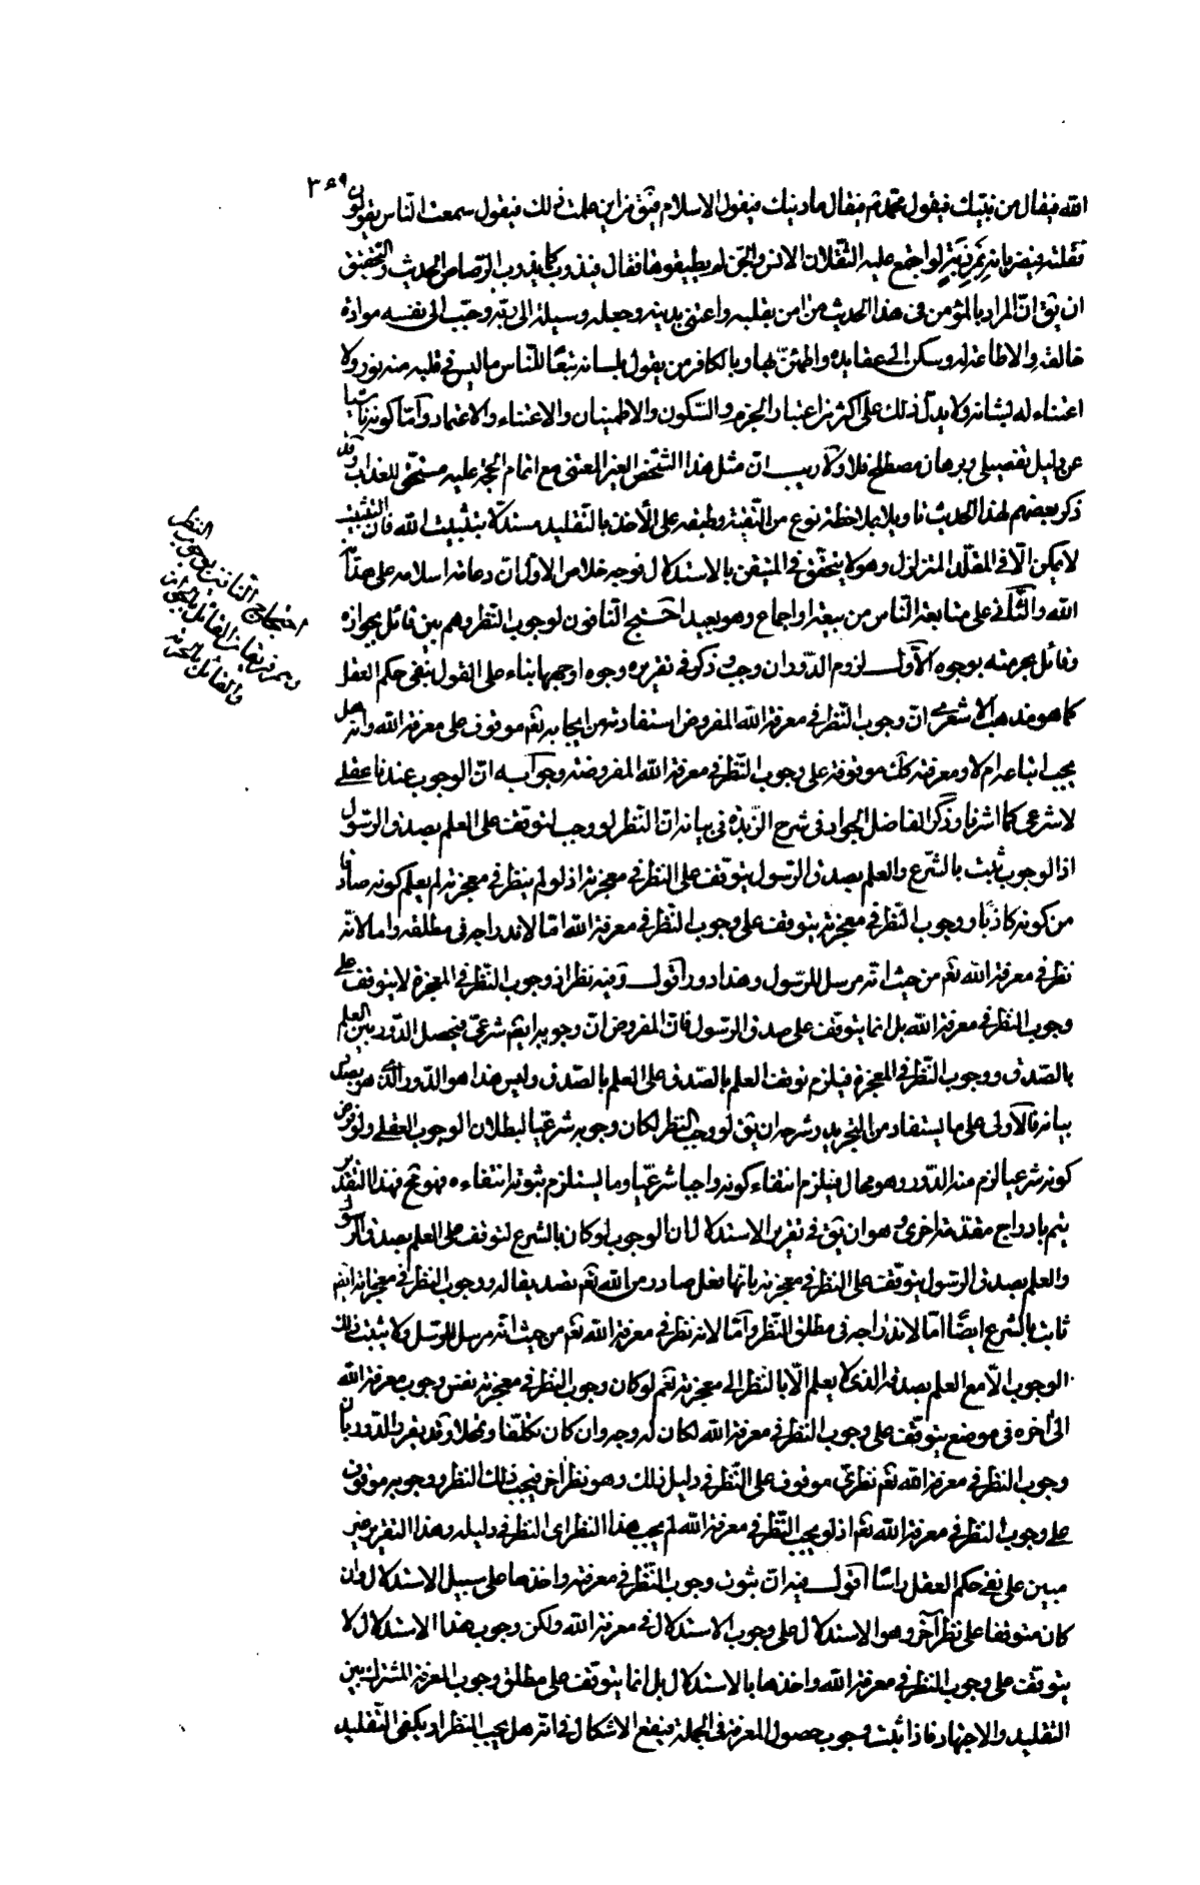 ٣٦٩
الله فيقال من نبيك فيقول محمد ثم فيقال ما دينك فيقول الاسلام فيق من اين علمت ذلك فيقول سمعت الناس يقولون
فقلته فيضربانه بمرزبة لو اجتمع عليه الثقلان الانس والجن لم يطيقوها فقال فيذوب كما يذوب الرصاص الحديث والتحقيق
ان يق ان المراد بالمؤمن فى هذا الحديث من امن بقلبه واعتنى بدينه وجعله وسيلة الى ربه وحبب الى نفسه موادة
خالقه والاطاعة له وسكن الى عقايده واطمئن بها وبالكافر من يقول بلسانه تبعًا للناس ما ليس فى قلبه منه نور ولا
اعتناء له بشانه ولا يدل ذلك على اكثر من اعتبار الجزم والسكون والاطمينان والاعتناء والاعتماد وامّا كونه ناشيا
عن دليل تفصيلى وبرهان مصطلح فلا ولا ريب ان مثل هذا الشخص الغير المعتنى مع اتمام الحجة عليه مستحق للعذاب وقد
ذكر بعضهم لهذا الحديث تاويلا بملاحظة نوع من التقية وطبقه على الأخذ بالتقليد مستدلا بتثبيت الله فان التثبيت
لا يمكن الّا فى المقلد المتزلزل وهو لا يتحقق فى المتيقن بالاستدلال فوجه خلاص الاول ان دعامة اسلامه على هداية
الله والثانى على متابعة الناس من بيعة او اجماع وهو بعيد احتج النافون لوجوب النظر وهم بين قائل بجوازه
وقائل بحرمته بوجوه الاول لزوم الدّور ان وجب وذكر فى تقريره وجوه اوجهها بناء على القول بنفى حكم العقل
كما هو مذهب الاشعرى ان وجوب النظر فى معرفة الله المفروض استفادته من ايجابه تعم موقوف على معرفة الله وانه هل
يجب اتباعه ام لا ومعرفته كك موقوفة على وجوب النظر فى معرفة الله المفروضة وجوابه ان الوجوب عندنا عقلى
لا شرعى كما اشرنا وذكر الفاضل الجواد فى شرح الزبدة فى بيانه ان النظر لو وجب لتوقف على العلم بصدق الرسول
اذ الوجوب يثبت بالشرع والعلم بصدق الرسول يتوقف على النظر فى معجزته اذ لو لم ينظر فى معجزته لم يعلم كونه صادقا
من كونه كاذبًا ووجوب النظر فى معجزته يتوقف على وجوب النظر فى معرفة الله امّا لاندراجه فى مطلقه واما لانه
نظر فى معرفة الله تعم من حيث انه مرسل للرسول وهذا دور اقول وفيه نظر اذ وجوب النظر فى المعجزة لا يتوقف على
وجوب النظر فى معرفة الله بل انما يتوقف على صدق الرسول فان المفروض ان وجوبه ايضم شرعى فيحصل الدّور بين العلم
بالصدق ووجوب النظر فى المعجزة فيلزم توقف العلم بالصدق على العلم بالصدق وليس هذا هو الدور الذى هو بصدد
بيانه فالاولى على ما يستفاد من التجريد وشرحه ان يق لو وجب النظر لكان وجوبه شرعيا لبطلان الوجوب العقلى ولو فرض
كونه شرعيا لزم منه الدّور وهو محال فيلزم انتفاء كونه واجبا شرعيا وما يستلزم ثبوته انتفاءه فهو مح فهذا التقدير
يتم بادراج مقدمة اخرى وهو ان يق فى تقرير الاستدلال ان الوجوب لو كان بالشرع لتوقف على العلم بصدق الرسول
والعلم بصدق الرسول يتوقف على النظر فى معجزته بانها فعل صادر من الله تعم تصديقا له ووجوب النظر فى معجزاته ايضم
ثابت بالشرع ايضًا امّا لاندراجه فى مطلق النظر وامّا لانه نظر فى معرفة الله تعم من حيث انه مرسل للرسل ولا يثبت ذلك
الوجوب الّا مع العلم بصدقه الذى لا يعلم الّا بالنظر الى معجزته نعم لو كان وجوب النظر فى معجزته نفس وجوب معرفة الله
الى اخره فى موضع يتوقف على وجوب النظر فى معرفة الله لكان له وجه وان كان تكلفا وتمحلا وقد يقرر الدّور بان
وجوب النظر فى معرفة الله تعم نظرى موقوف على النظر فى دليل ذلك وهو نظر اخر فيجب ذلك النظر ووجوبه موقوف
على وجوب النظر فى معرفة الله تعم اذ لو لم يجب النظر فى معرفة الله لم يجب هذا النظر اى النظر فى دليله وهذا التقرير غير
مبين على نفى حكم العقل راسًا اقول فيه ان ثبوت وجوب النظر فى معرفته واخذها على سبيل الاستدلال وان
كان متوقفا على نظر آخر وهو الاستدلال على وجوب الاستدلال فى معرفة الله ولكن وجوب هذا الاستدلال لا
يتوقف على وجوب النظر فى معرفة الله واخذها بالاستدلال بل انما يتوقف على مطلق وجوب المعرفة المشترك بين
التقليد والاجتهاد فاذا ثبت وجوب حصول المعرفة فى الجملة فيقع الاشكال فى انه هل يجب النظر او يكفى التقليد
احتجاج النافين لوجوب النظر
وهم فريقان القائل بالجواز
والقائل بالحرمة